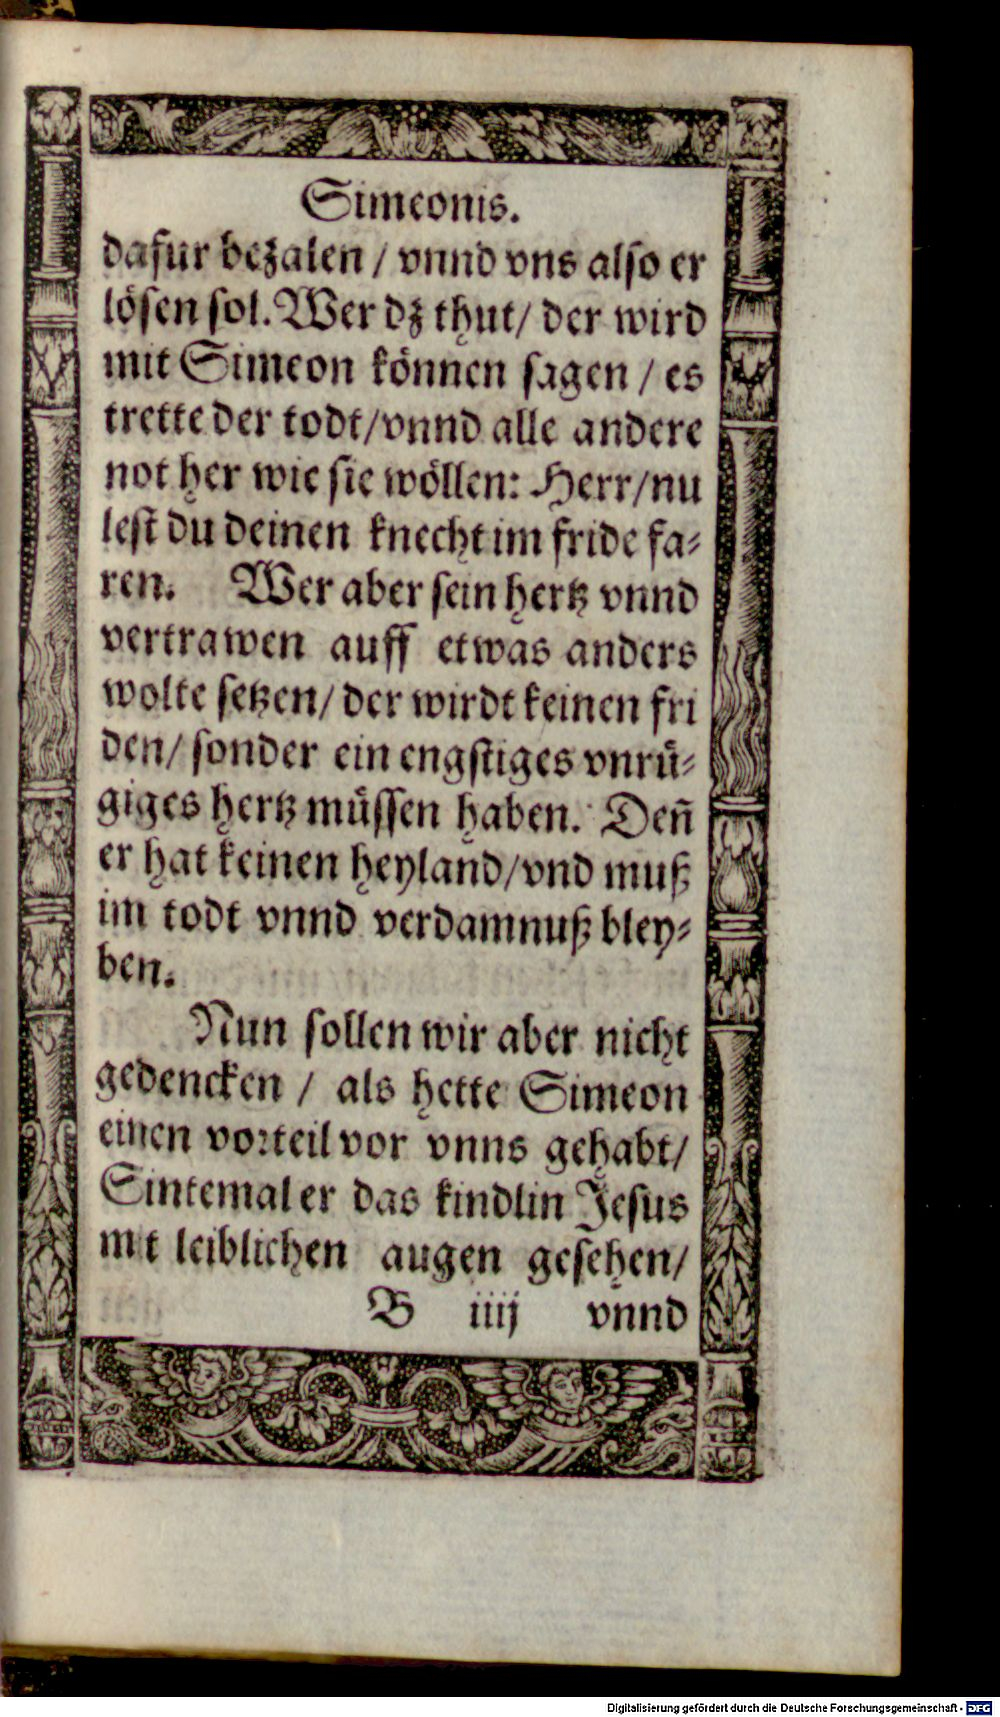 Simeonis.
dafur bezalen / vnnd vns also er
lösen sol. Wer dz thut / der wird
mit Simeon können sagen / es
trette der todt / vnnd alle andere
not her wie sie wöllen: Herr / nu
lest du deinen knecht im fride fa⸗
ren. Wer aber sein hertz vnnd
vertrawen auff etwas anders
wolte setzen / der wirdt keinen fri
den / sonder ein engstiges vnrü⸗
giges hertz müssen haben. Deñ
er hat keinen heyland / vnd muß
im todt vnnd verdamnuß bley⸗
ben.
Nun sollen wir aber nicht
gedencken / als hette Simeon
einen vorteil vor vnns gehabt /
Sintemal er das kindlin Jesus
mit leiblichen augen gesehen /
B iiij vnnd
Digitalisierung gefördert durch die Deutsche Forschungsgemeinschaft - DFG